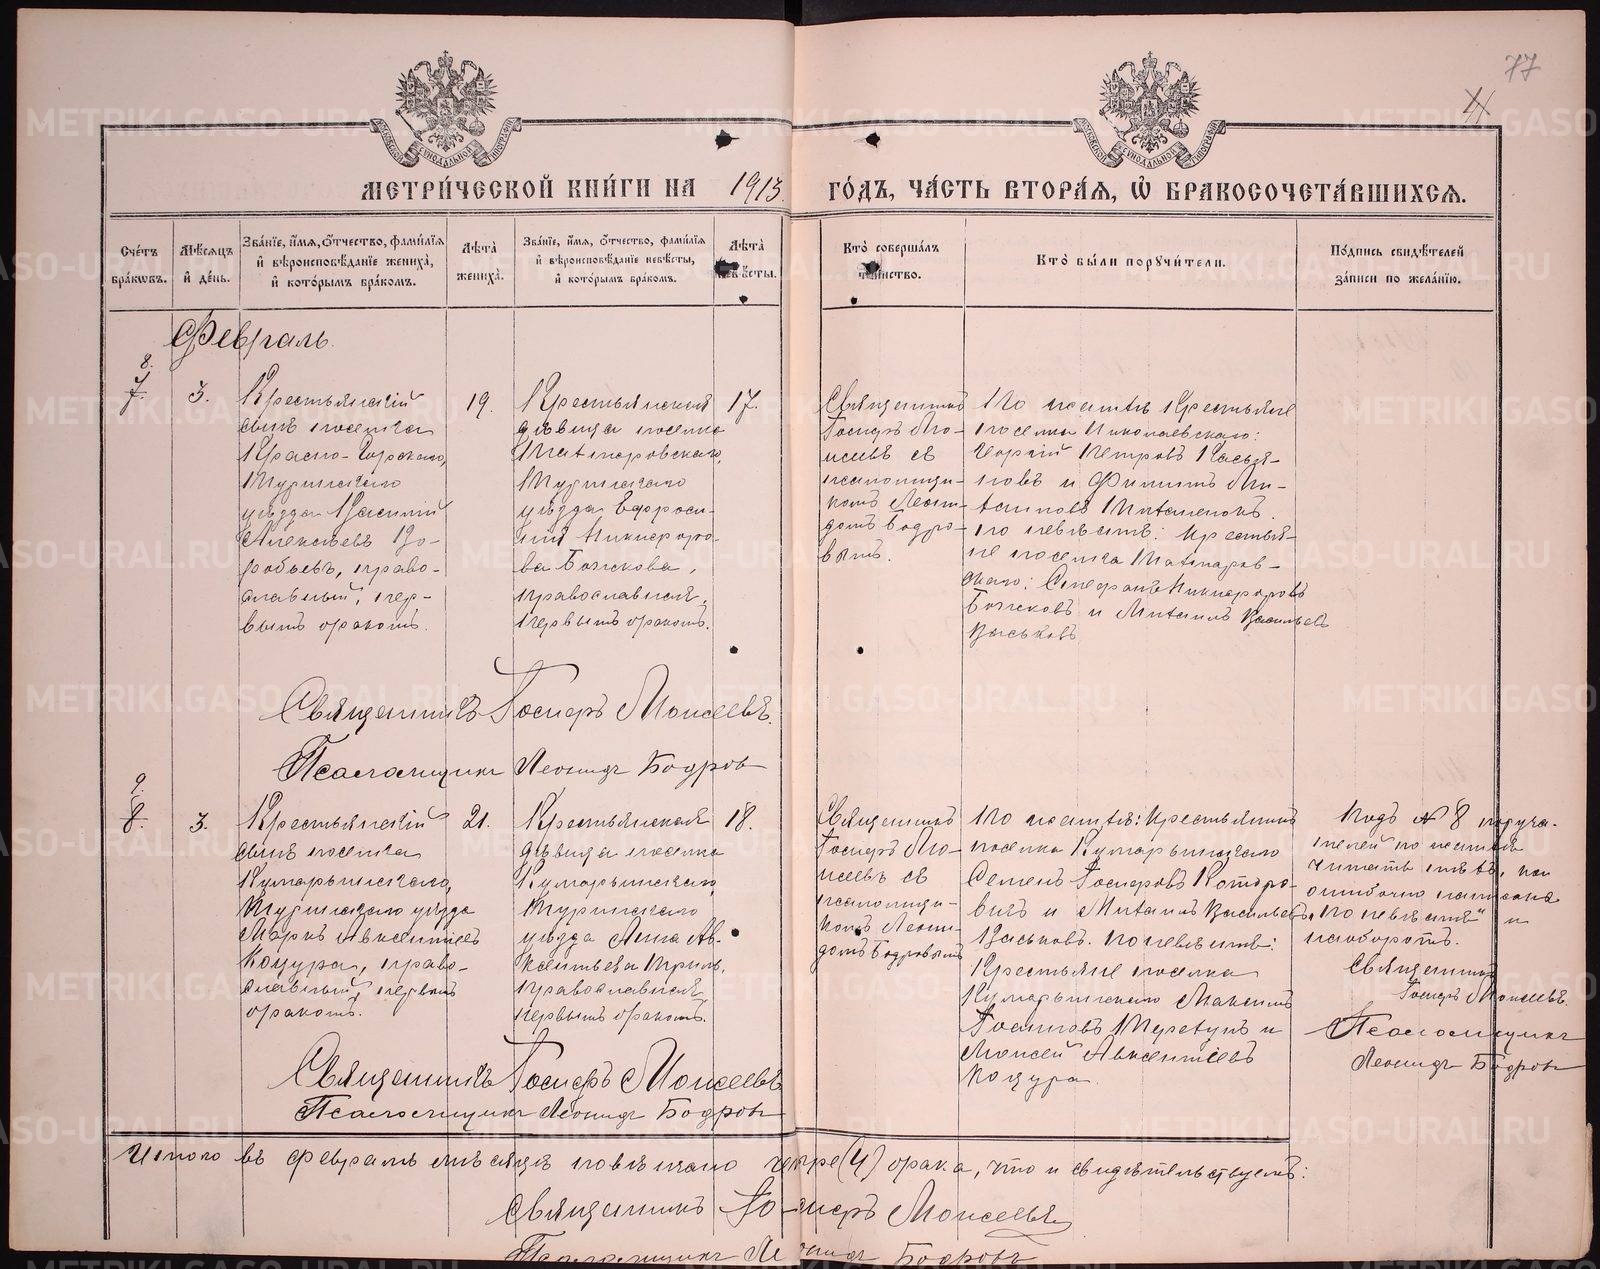 77
МЕТРИ́ЧЕСКОЙ КНИ́ГИ НА 1913. ГО́ДЪ, ЧА́СТЬ ВТОРА́Я, Ѡ҆ БРАКОСОЧЕТА́ВШИХСЯ.
Сче́тъ бра́кѡвъ.
Мѣ́сяцъ и҆ де́нь.
Зва́нїе, и҆́мя, ѻ҆́тчество, фами́лїя
и҆ вѣроисповѣ́данїе жениха̀,
и҆ кото́рымъ бра́комъ.
Лѣта̀ жениха̀.
Зва́нїе, и҆́мя, ѻ҆́тчество, фами́лїя
и҆ вѣроисповѣ́данїе невѣ́сты,
и҆ кото́рымъ бра́комъ.
Лѣта̀ невѣ́сты.
Кто̀ соверша́лъ
та́инство.
Кто̀ бы́ли порꙋчи́тели.
По́дпись свидѣ́телей
за́писи по жела́нїю.
Февраль.
8.
7.
3.
Крестьянскій
сынъ поселка
Красно-Горскаго,
Туринскаго
уѣзда Василий
Алексѣевъ Во-
робьевъ, право-
славный, пер-
вымъ бракомъ.
19.
Крестьянская
дѣвица поселка
Туринскаго
уѣзда Евфроси-
нія Никифоро-
ва Божкова,
православная,
первымъ бракомъ.
17.
Священникъ
Іосифъ Мо-
исеевъ съ
псаломщи-
комъ Леони-
домъ Бодро-
вымъ.
По женихѣ крестьяне
поселка Николаевскаго:
Георгій Петровъ Касья-
новъ и Филиппъ Ми-
по невѣстѣ: крестья-
не поселка
скаго: Стефанъ Никифоровъ
Божковъ и Михаилъ Васильевъ
Васьковъ
Священникъ Іосифъ Моисеевъ.
Псаломщикъ Леонидъ Бодровъ
9.
8.
3.
Крестьянскій
сынъ поселка
Кумарьинскаго,
Туринскаго уѣзда
Маркъ Авксентіевъ
Коцура, право-
славный, первымъ
бракомъ.
21.
Крестьянская
дѣвица поселка
Кумарьинскаго,
Туринскаго
уѣзда Анна Ав-
ксентьева
православная,
первымъ бракомъ.
18.
Священникъ
Іосифъ Мо-
исеевъ съ
псаломщи-
комъ Леони-
домъ Бодровымъ
По женихѣ: крестьянинъ
поселка Кумарьинскаго
Семенъ Іосифовъ
и Михаилъ Васильевъ
Васьковъ. По невѣстѣ:
Крестьяне поселка
Кумарьинскаго Максимъ
Іоанновъ и
Моисей Авксентіевъ
Коцура.
Подъ № 8 поруча-
телей по женихѣ
читать такъ, какъ
ошибочно написано
„по невѣстѣ" и
наоборотъ.
Священникъ
Іосифъ Моисеевъ.
Псаломщикъ
Леонидъ Бодровъ
Священникъ Іосифъ Моисеевъ
Псаломщикъ Леонидъ Бодровъ
Итого въ февралѣ мѣсяцѣ повѣнчано четыре (4) брака, что и свидѣтельствуемъ:
Священникъ Іосифъ Моисеевъ
Псаломщикъ Леонидъ Бодровъ
METRIKI.GASO-URAL.RU